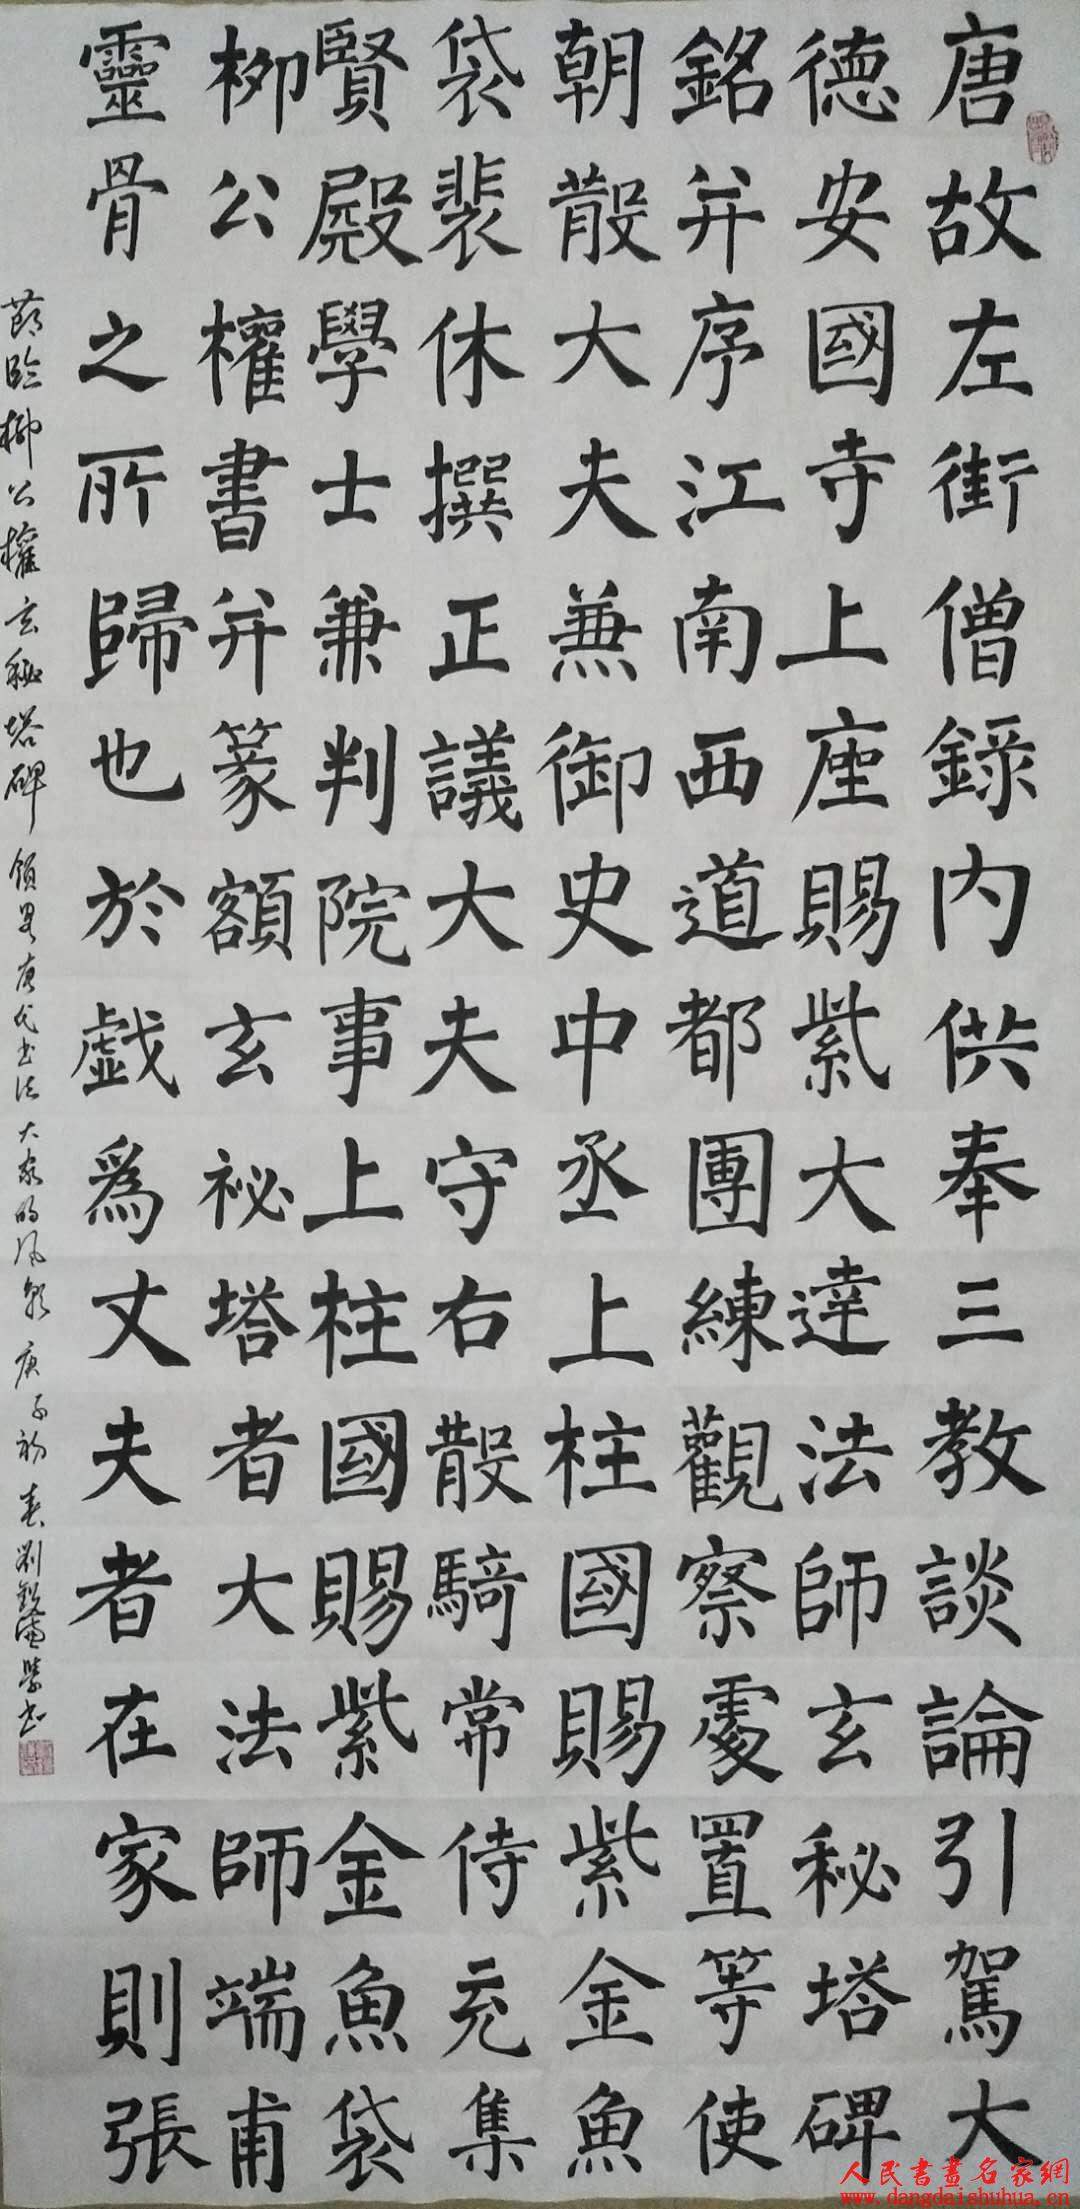 唐故左街僧錄內供奉三教談論引駕大
德安國寺上座賜紫大達法師玄秘塔碑
銘并序江南西道都團練觀察處置等使
朝散大夫兼御史中丞上柱國賜紫金魚
袋裴休撰正議大夫守右散騎常侍充集
賢殿學士兼判院事上柱國賜紫金魚袋
柳公權書并篆額玄祕塔者大法師端甫
靈骨之所歸也於戲為丈夫者在家則張
節臨柳公權玄秘塔碑領略唐代書法大家的風貌庚子初春劉
人民書畫名家網
www.dangdaishuhua.cn